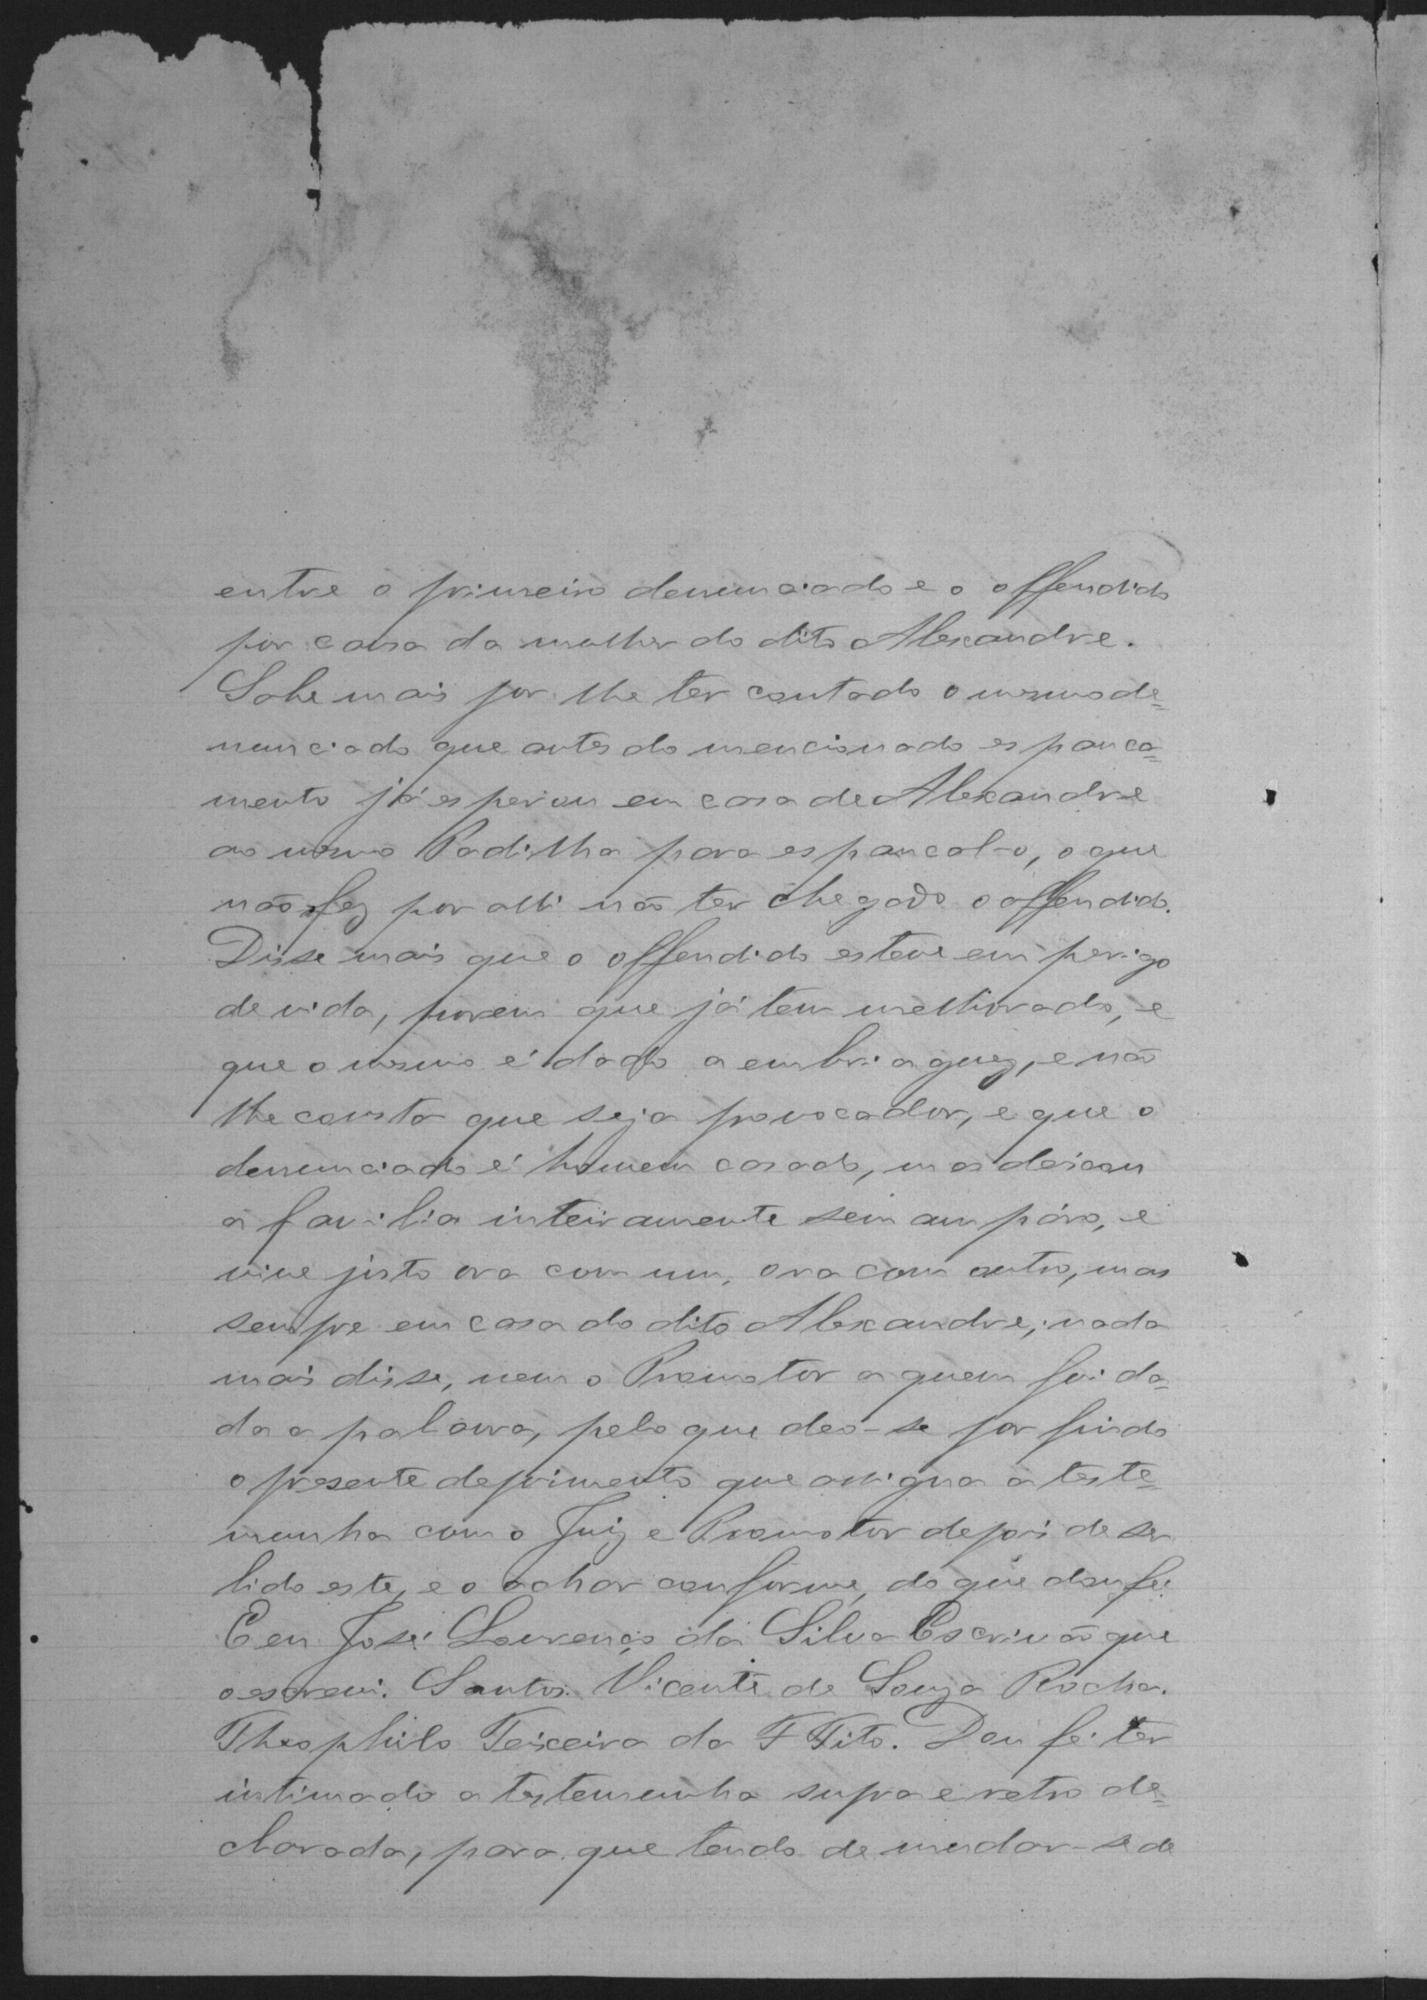 entre o primeiro denunciado e o offendido
por causa da mulher do dito Alexandre.
Sabe mais por lhe ter contado o mesmo de=
nunciado que antes do mencionado espanca=
mento já esperou em casa de Alexandre
ao mesmo Padilha para espancal-o, o que
não fez por alli não ter chegado o offendido.
Disse mais que o offendido esteve em perigo
de vida, porem que já tem melhorado, e
que o mesmo é dado a embriaguez, e não
lhe consta que seja provocador, e que o
denunciado é homem casado, mas deixou
a familia inteiramente sem ampáro, e
vive justo ora com um, ora com outro, mas
sempre em casa do dito Alexandre; nada
mais disse, nem o Promotor a quem foi da=
da a palavra, pelo que deo-se por findo
o presente depoimento que assigna a teste=
munha com o Juiz e Promotor depois de ser
lido este, e o achar conforme, do que dou fé.
E eu José Lourenço da Silva Escrivão que
o escrevi. Santos. Vicente de Souza Rocha.
Theophilo Teixeira da F Tito. Dou fé ter
intimado a testemunha supra e retro de=
clarada, para que tendo de mudar-se de